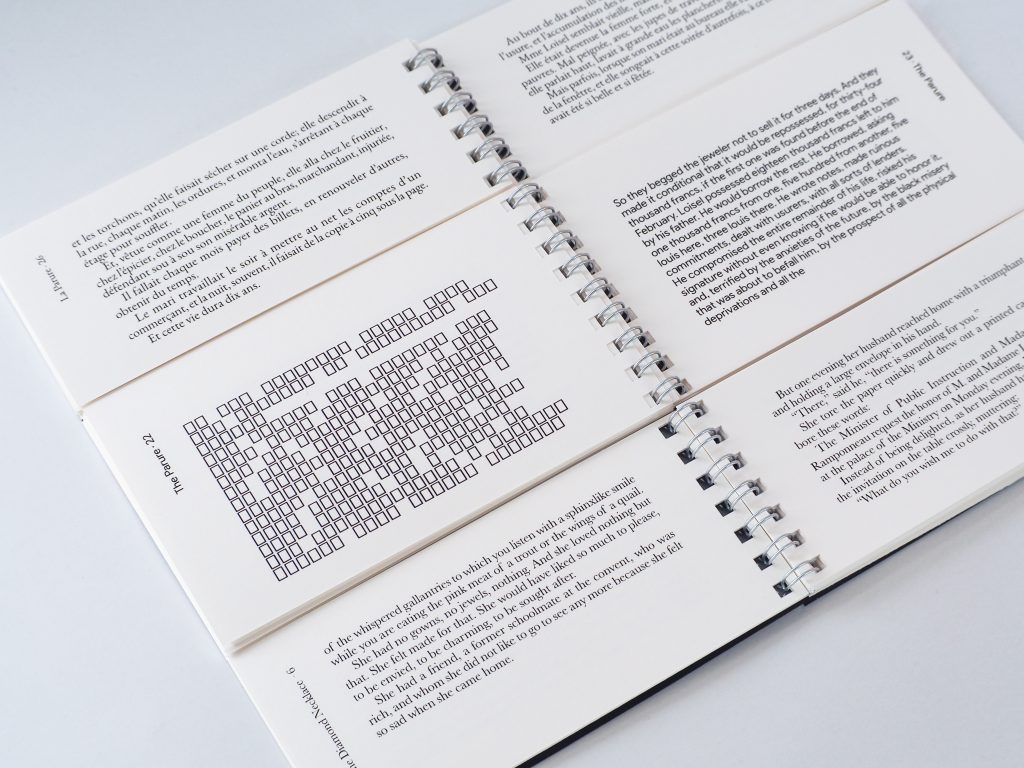 La Parure 26
et les torchons, qu'elle faisait sécher sur une corde; elle descendit à
la rue, chaque matin, les ordures, et monta l'eau, s'arrêtant à chaque
étage pour souffler.
Et, vêtue comme une femme du peuple, elle alla chez le fruitier,
chez l'épicier, chez le boucher, le panier au bras, marchandant, injuriée,
défendant sou à sou son misérable argent.
Il fallait chaque mois payer des billets, en renouveler d'autres,
obtenir du temps.
Le mari travaillait le soir à mettre au net les comptes d'un
commerçant, et la nuit, souvent, il faisait de la copie à cinq sous la page.
Et cette vie dura dix ans.
Au bout de dix ans, il
l'usure, et l'accumulation des
Mme Loisel semblait vieille, ma
Elle était devenue la femme forte, et
pauvres. Mal peignée, avec les jupes de tra
elle parlait haut, lavait à grande eau les planchers
Mais parfois, lorsque son mari était au bureau elle
de la fenêtre, et elle songeait à cette soirée d'autrefois, à ce
avait été si belle et si fêtée.
The Parure 22
23 The Parure
So they begged the jeweler not to sell it for three days. And they
made it conditional that it would be repossessed, for thirty-four
thousand francs, if the first one was found before the end of
February. Loisel possessed eighteen thousand francs left to him
by his father. He would borrow the rest. He borrowed, asking
one thousand francs from one, five hundred from another, five
louis here, three louis there. He wrote notes, made ruinous
commitments, dealt with usurers, with all sorts of lenders.
He compromised the entire remainder of his life, risked his
signature without even knowing if he would be able to honor it,
and, terrified by the anxieties of the future, by the black misery
that was about to befall him, by the prospect of all the physical
deprivations and all the
ne Diamond Necklace 6
of the whispered gallantries to which you listen with a sphinxlike smile
while you are eating the pink meat of a trout or the wings of a quail.
She had no gowns, no jewels, nothing. And she loved nothing but
that. She felt made for that. She would have liked so much to please,
to be envied, to be charming, to be sought after.
She had a friend, a former schoolmate at the convent, who was
rich, and whom she did not like to go to see any more because she felt
so sad when she came home.
But one evening her husband reached home with a triumphant
and holding a large envelope in his hand.
"There," said he, "there is something for you."
She tore the paper quickly and drew out a printed ca
bore these words:
The Minister of Public Instruction and Mada
Ramponneau request the honor of M. and Madame L
at the palace of the Ministry on Monday evening,
Instead of being delighted, as her husband h
the invitation on the table crossly, muttering:
"What do you wish me to do with that?"